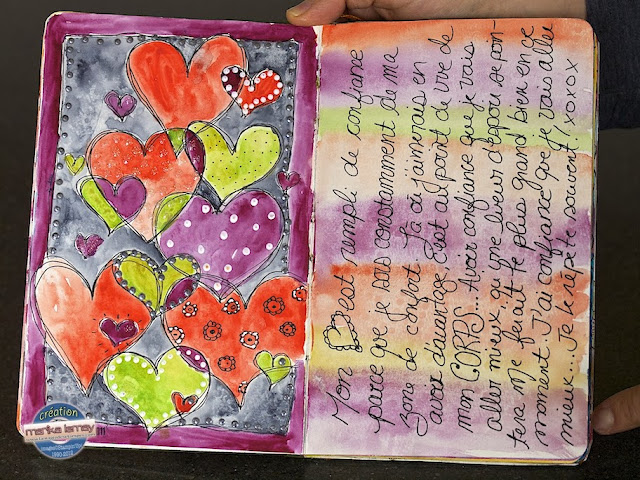 Mon est rempli de confiance
parce que je sors constamment de ma
zone de confort. Là où j'aimerais en
avoir d'avantage, c'est au point de vue de
mon CORPS... Avoir confiance que je vais
aller mieux, qu'une lueur d'espoir se poin-
tera me ferait le plus grand bien en ce
moment. J'ai confiance que je vais aller
mieux... Je le répète souvent! xoxox
création
marika lemay